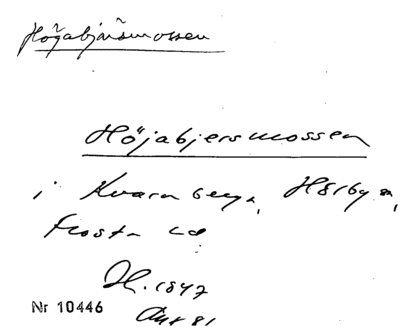 Högabjärsmossen
Höjabjersmossen
i Kvarnberga, Hörby sn,
Frosta hd
H. 1847
Nr 10446